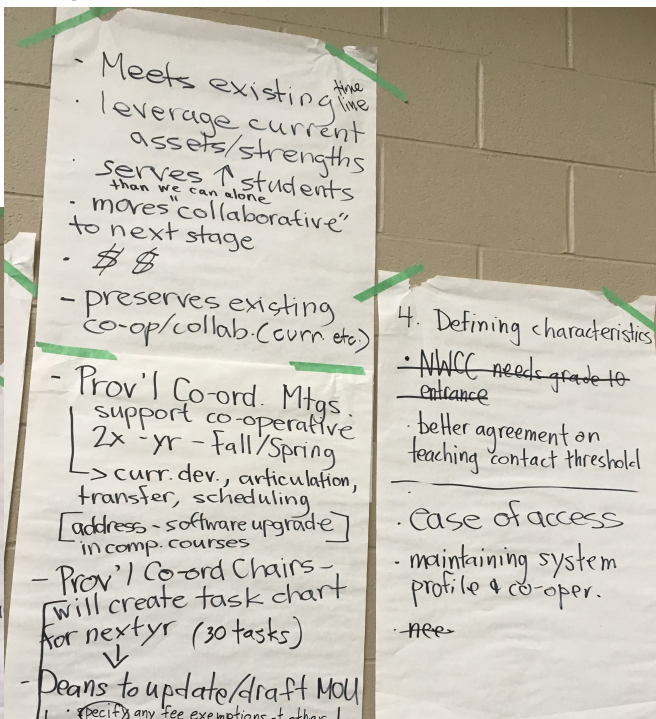 - Meets existing time line
· leverage current
assets/strengths
· serves ↑ students
than we can alone
· moves "collaborative"
to next stage
· $ $
- preserves existing
co-op/collab. (curr. etc.)
- Prov'l Co-ord. Mtgs.
support co-operative
2x - yr - Fall/Spring
-> curr. dev., articulation,
transfer, scheduling
[address - software upgrade]
in comp. courses
- Prov'l Co-ord Chairs -
will create task chart
for next yr (30 tasks)
↓
- Deans to update/draft MOU
· specify any fee exemptions at other
4. Defining characteristics
· NWCC needs grade 10
entrance
· better agreement on
teaching contact threshold
· ease of access
· maintaining system
profile & co-oper.
· nee